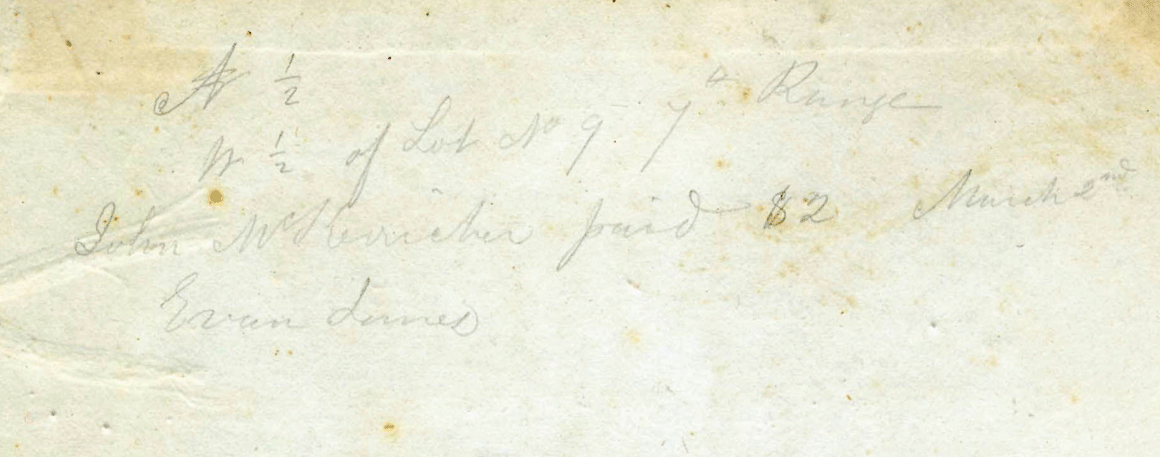 N ½
W ½ of Lot No 9 7th Range
John McKerricher paid $2 March 2nd
Evan Jones